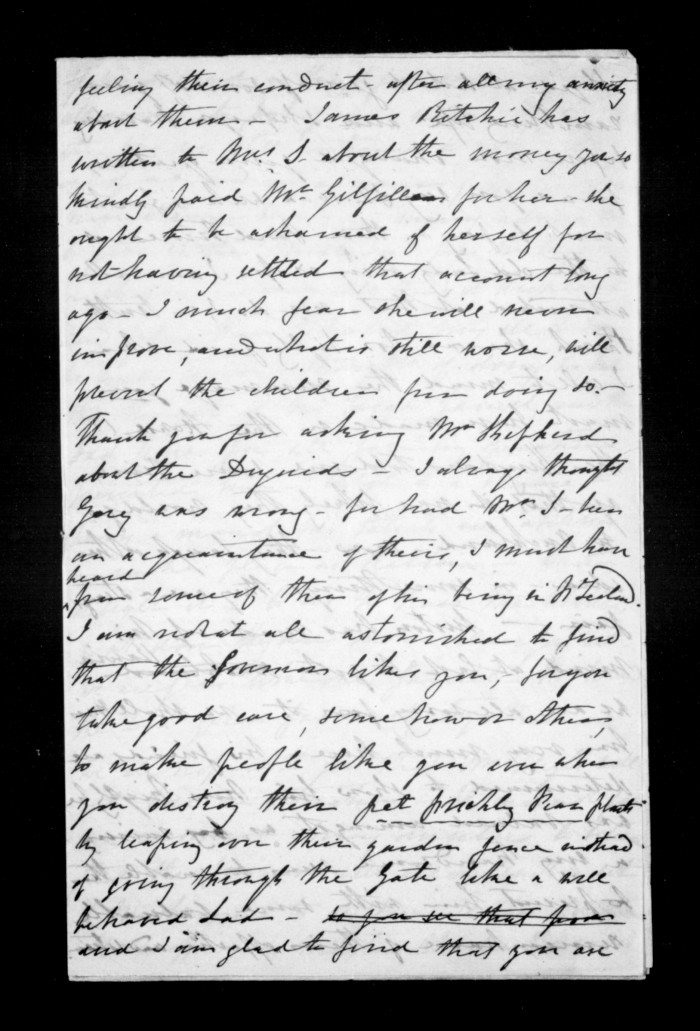 feeling their conduct - after all my anxiety
about them - James Ritchie has
written to Mrs S. about the money you so
kindly paid Mr Gilfillan for her - she
ought to be ashamed of herself for
not having settled that account long
ago - I much fear she will never
improve, and what is still worse, will
prevent the children from doing so. -
Thank you for asking Mr Shepherd
about the Duguids - I always thought
was wrong - for had Mr S- been
an acquaintance of theirs, I must have
heard
from some of them of his being in N Zealand.
I am not at all astonished to find
that the Governor likes you, for you
take good care, some how or other,
to make people like you even when
you destroy their pet prickly Pear plants
by leaping over their garden fence instead
of going through the Gate like a well
behaved Lad - so you see that from
and I am glad to find that you are